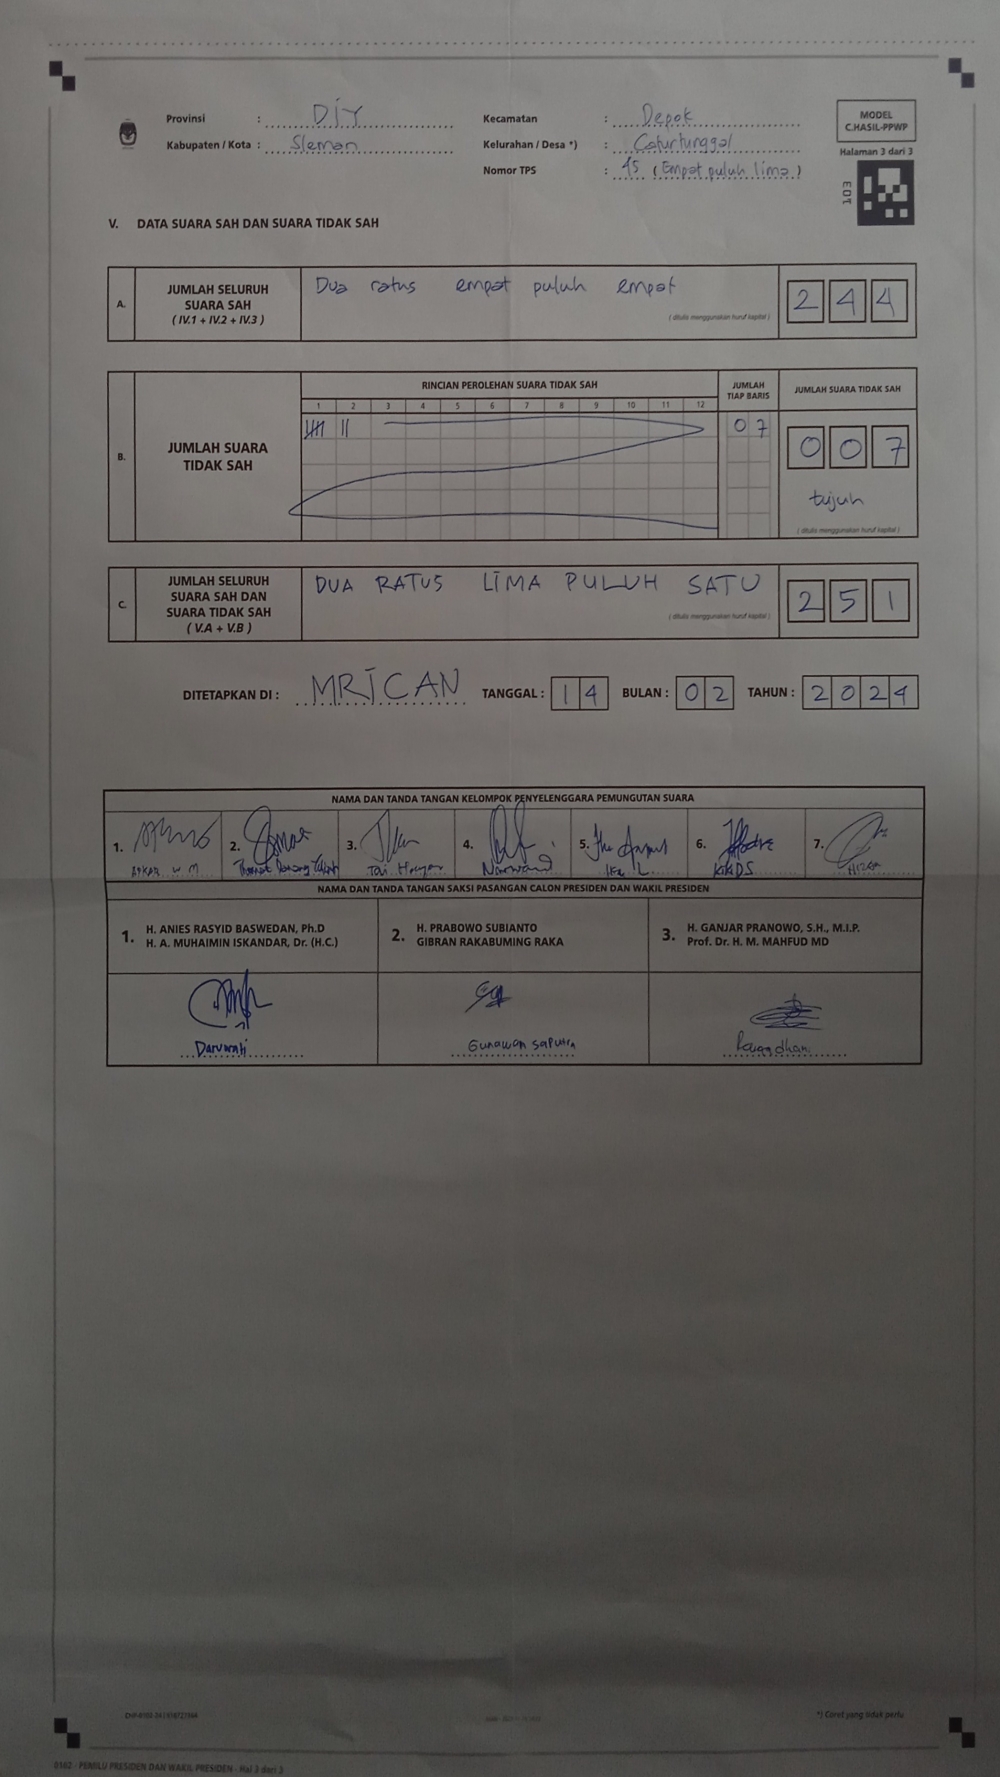 Provinsi : DIY
Kabupaten / Kota : Sleman
Kecamatan : Depok
Kelurahan / Desa *) : Caturtunggal
Nomor TPS : 45 (Empat puluh lima)
MODEL
C.HASIL-PPWP
Halaman 3 dari 3
E01
V. DATA SUARA SAH DAN SUARA TIDAK SAH
A. JUMLAH SELURUH
SUARA SAH
( IV.1 + IV.2 + IV.3 )
Dua ratus empat puluh empat
( ditulis menggunakan huruf kapital )
2 4 4
B. JUMLAH SUARA
TIDAK SAH
RINCIAN PEROLEHAN SUARA TIDAK SAH
1 2 3 4 5 6 7 8 9 10 11 12
JUMLAH
TIAP BARIS
0 7
JUMLAH SUARA TIDAK SAH
0 0 7
tujuh
( ditulis menggunakan huruf kapital )
C. JUMLAH SELURUH
SUARA SAH DAN
SUARA TIDAK SAH
( V.A + V.B )
DUA RATUS LIMA PULUH SATU
( ditulis menggunakan huruf kapital )
2 5 1
DITETAPKAN DI : MRICAN TANGGAL : 14 BULAN : 02 TAHUN : 2024
NAMA DAN TANDA TANGAN KELOMPOK PENYELENGGARA PEMUNGUTAN SUARA
1. 2. 3. 4. 5. 6. 7.
NAMA DAN TANDA TANGAN SAKSI PASANGAN CALON PRESIDEN DAN WAKIL PRESIDEN
1. H. ANIES RASYID BASWEDAN, Ph.D
H. A. MUHAIMIN ISKANDAR, Dr. (H.C.)
2. H. PRABOWO SUBIANTO
GIBRAN RAKABUMING RAKA
3. H. GANJAR PRANOWO, S.H., M.I.P.
Prof. Dr. H. M. MAHFUD MD
Darurati
Gunawan Saputra
*) Coret yang tidak perlu
PEMILU PRESIDEN DAN WAKIL PRESIDEN - Hal 3 dari 3